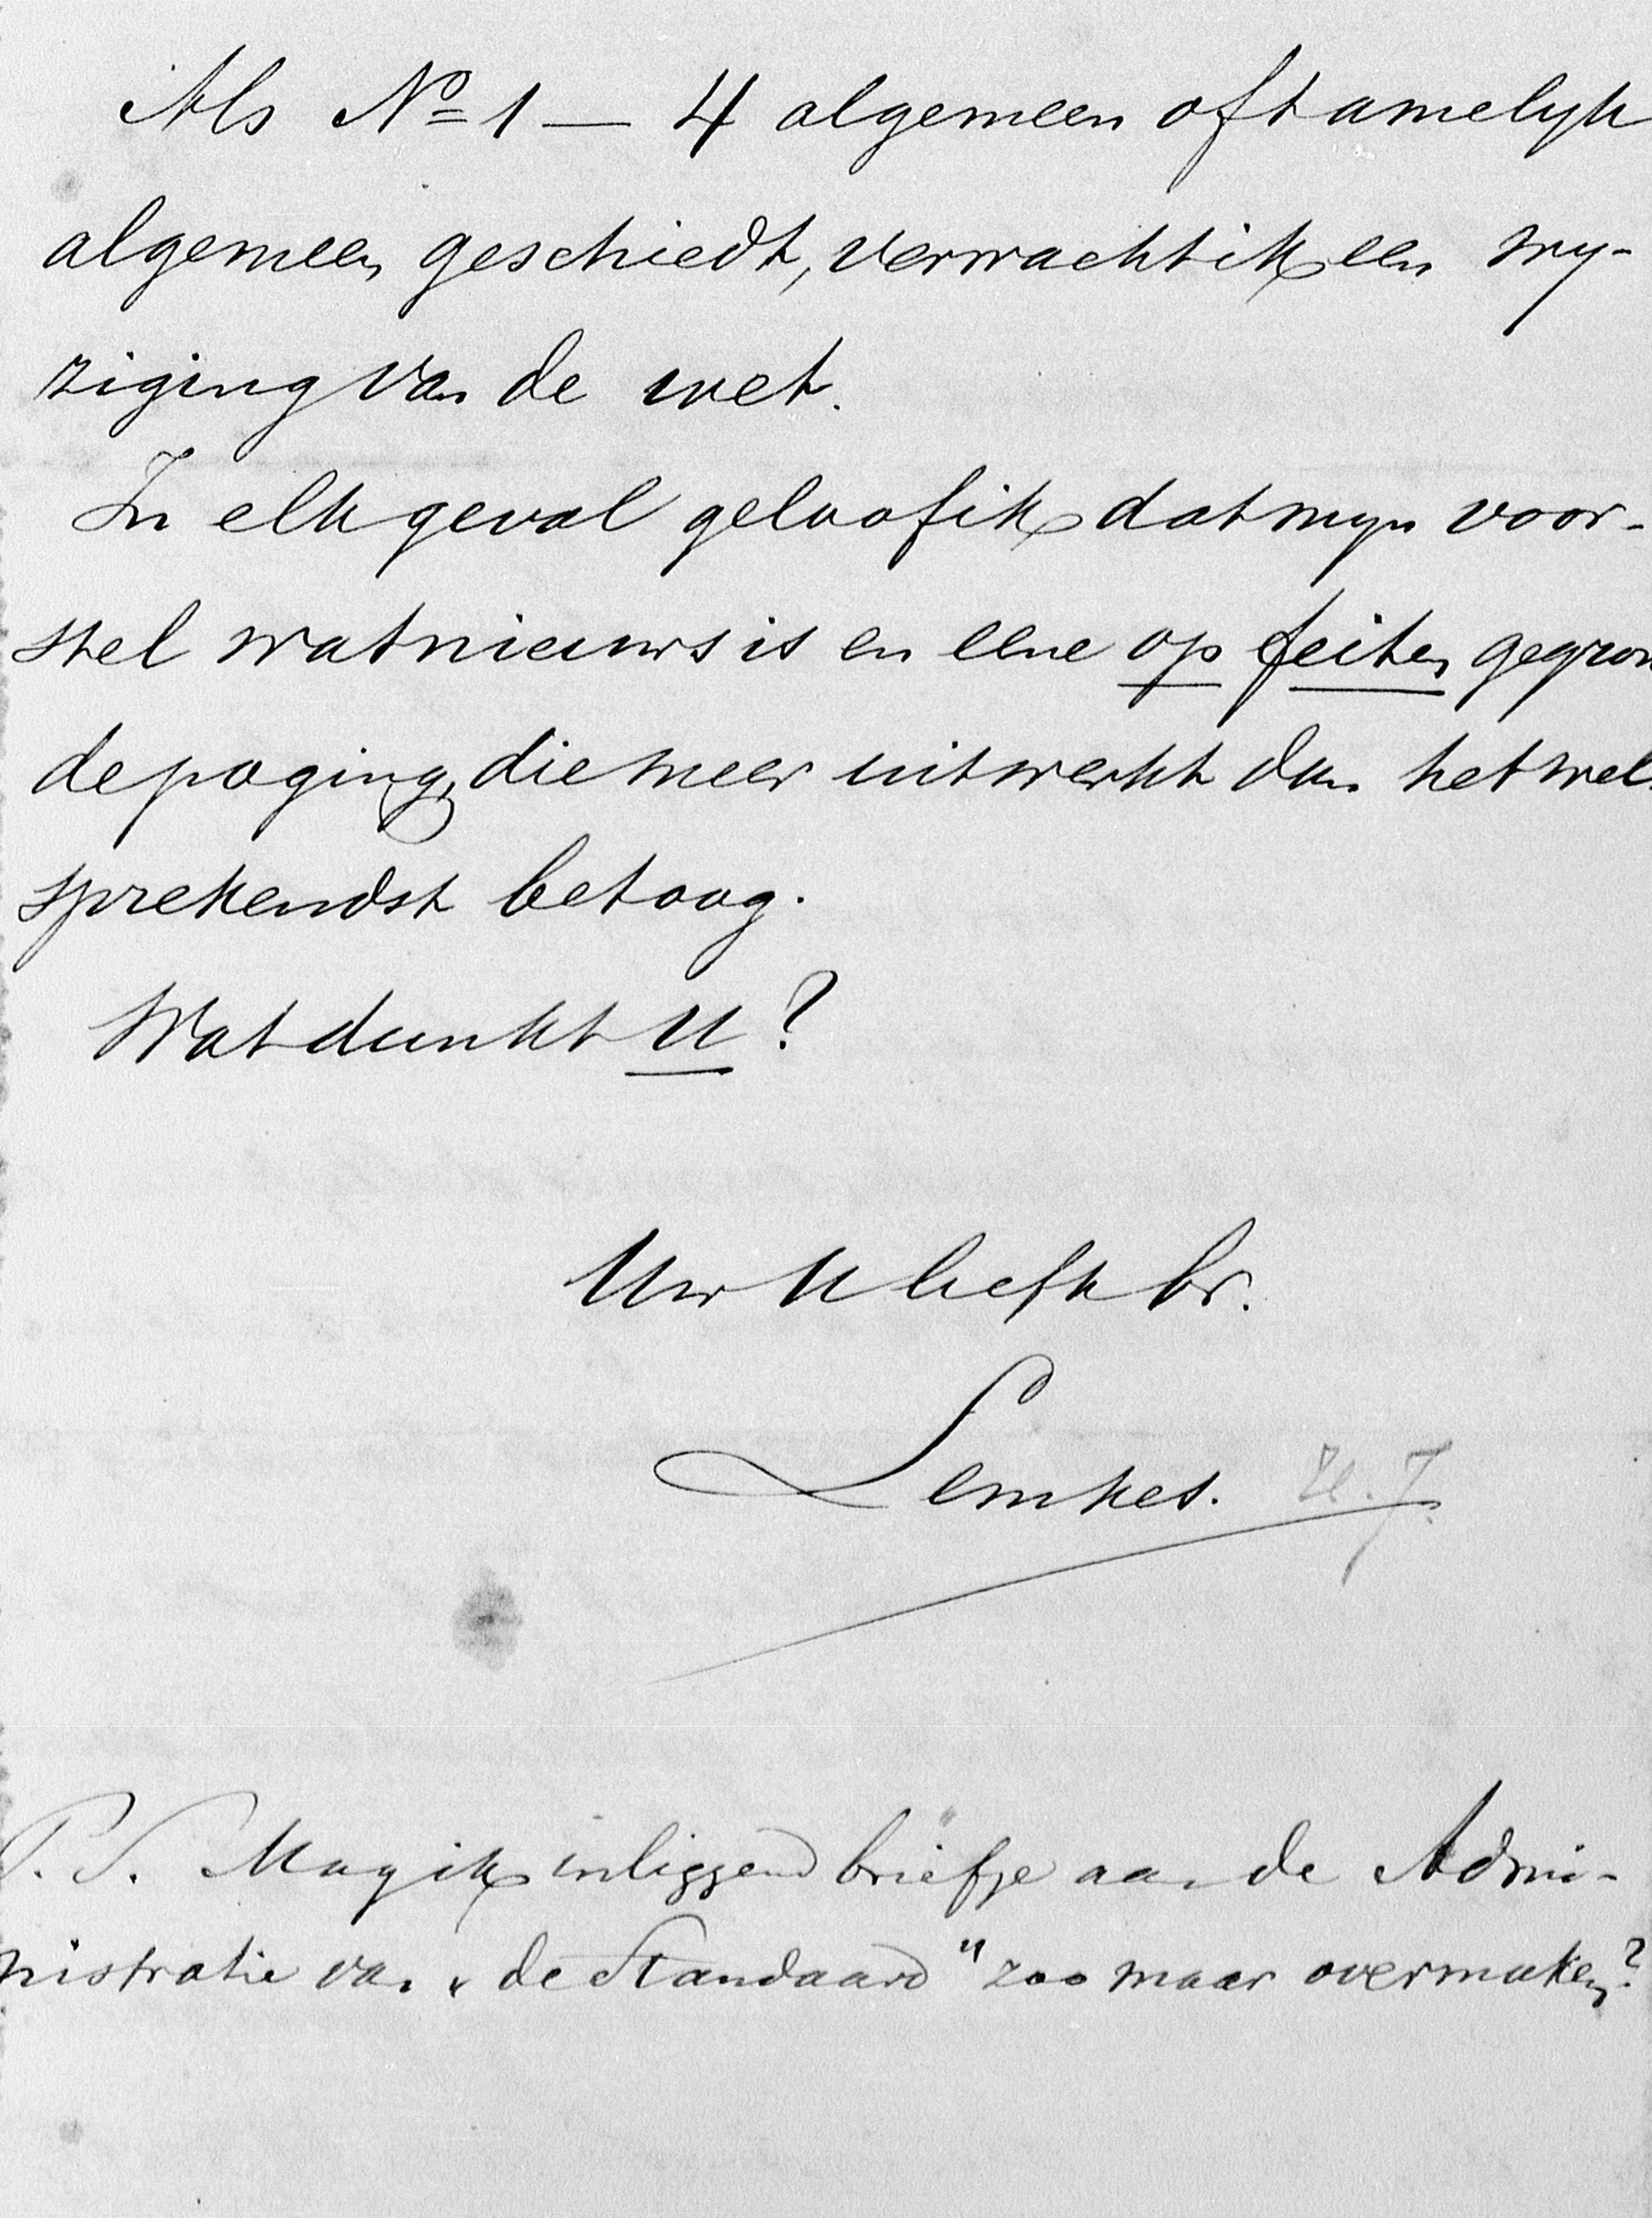 Als No 1 — 4 algemeen of tamelyk
algemeen geschiedt, verwacht ik een wy-
ziging van de wet.
In elk geval geloof ik dat myn voor-
stel wat nieuws is en eene op feiten gegron
de poging, die meer uitwerkt dan het wel
sprekendst betoog.
Wat dunkt U?
Uw U liefh br.
Lemkes. H. J.
P. S. Mag ik inliggend briefje aan de Admi-
nistratie van „de Standaard" zoo maar overmaken?